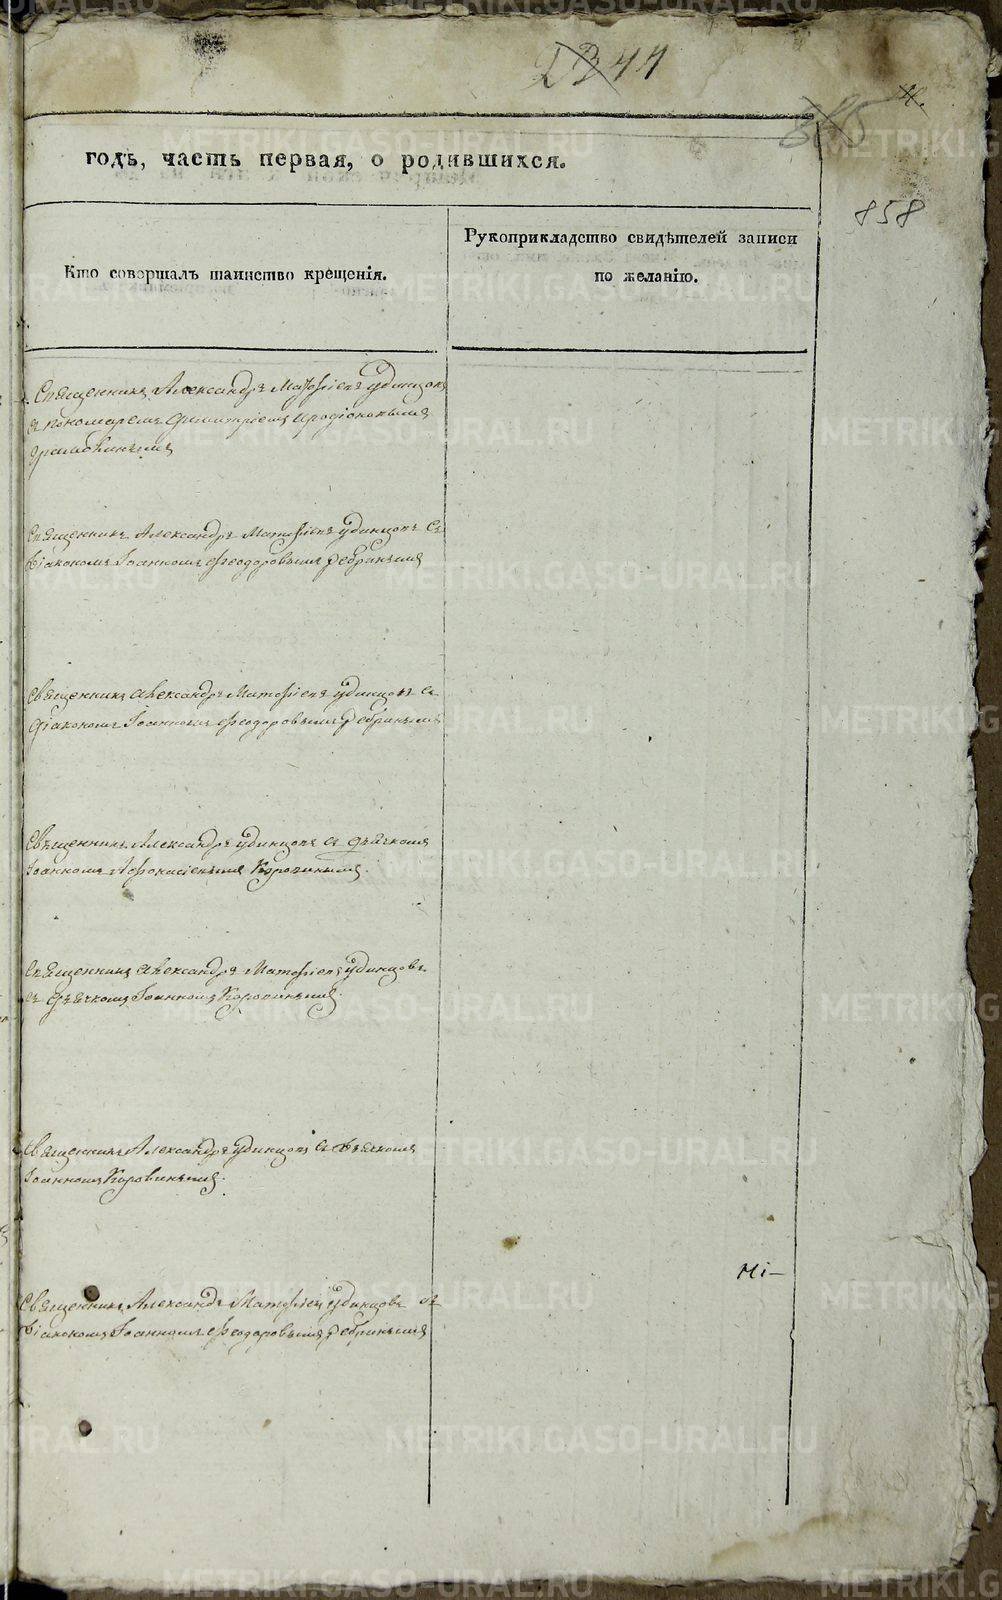 44
858
годъ, часть первая, о родившихся.
Кто совершалъ таинство крещенія.
Рукоприкладство свидѣтелей записи
по желанію.
Священникъ Александръ Матфіевъ Удинцовъ
съ пономаремъ Димитріемъ Иродіоновымъ
Священникъ Александръ Матфіевъ Удинцовъ съ
діакономъ Іоанномъ Феодоровымъ Ребринымъ
Священникъ Александръ Матфіевъ Удинцовъ съ
діакономъ Іоанномъ Феодоровымъ Ребринымъ
Священникъ Александръ Удинцовъ съ дьячкомъ
Іоанномъ Афонасіевымъ Коровинымъ.
Священникъ Александръ Матфіевъ Удинцовъ
съ дьячкомъ Іоанномъ Коровинымъ.
Священникъ Александръ Удинцовъ съ дьячкомъ
Іоанномъ Коровинымъ.
Священникъ Александръ Матфіевъ Удинцовъ съ
діакономъ Іоанномъ Феодоровымъ Ребринымъ
METRIKI.GASO-URAL.RU